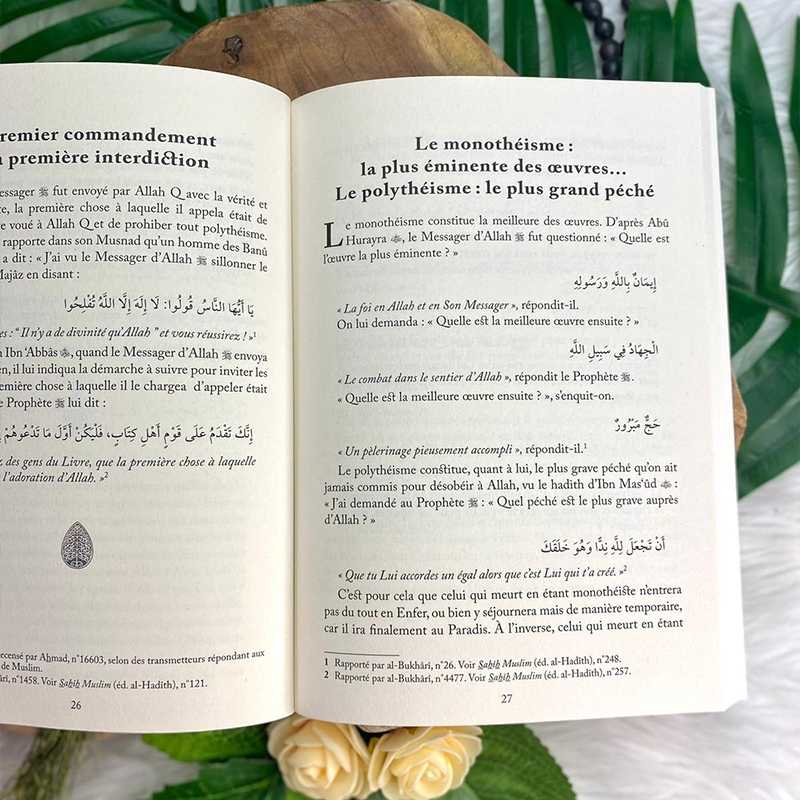 remier commandement
a première interdiction
essager ﷺ fut envoyé par Allah Q avec la vérité et
re, la première chose à laquelle il appela était de
e voué à Allah Q et de prohiber tout polythéisme.
rapporte dans son Musnad qu'un homme des Banû
a dit : « J'ai vu le Messager d'Allah ﷺ sillonner le
Majâz en disant :
يَا أَيُّهَا النَّاسُ قُولُوا: لَا إِلَهَ إِلَّا اللَّهُ تُفْلِحُوا
es : “ Il n'y a de divinité qu'Allah ” et vous réussirez ! »¹
n Ibn ‘Abbâs, quand le Messager d'Allah ﷺ envoya
en, il lui indiqua la démarche à suivre pour inviter les
remière chose à laquelle il le chargea d'appeler était
e Prophète ﷺ lui dit :
إِنَّكَ تَقْدَمُ عَلَى قَوْمٍ أَهْلِ كِتَابٍ، فَلْيَكُنْ أَوَّلَ مَا تَدْعُوهُمْ
z des gens du Livre, que la première chose à laquelle
l'adoration d'Allah. »²
ecensé par Ahmad, n°16603, selon des transmetteurs répondant aux
de Muslim.
ârî, n°1458. Voir Sahîh Muslim (éd. al-Hadîth), n°121.
26
Le monothéisme :
la plus éminente des œuvres...
Le polythéisme : le plus grand péché
Le monothéisme constitue la meilleure des œuvres. D'après Abû
Hurayra, le Messager d'Allah ﷺ fut questionné : « Quelle est
l'œuvre la plus éminente ? »
إِيمَانٌ بِاللَّهِ وَرَسُولِهِ
« La foi en Allah et en Son Messager », répondit-il.
On lui demanda : « Quelle est la meilleure œuvre ensuite ? »
الْجِهَادُ فِي سَبِيلِ اللَّهِ
« Le combat dans le sentier d'Allah », répondit le Prophète ﷺ.
« Quelle est la meilleure œuvre ensuite ? », s'enquit-on.
حَجٌّ مَبْرُورٌ
« Un pèlerinage pieusement accompli », répondit-il.¹
Le polythéisme constitue, quant à lui, le plus grave péché qu'on ait
jamais commis pour désobéir à Allah, vu le hadith d'Ibn Mas‘ûd :
« J'ai demandé au Prophète ﷺ : « Quel péché est le plus grave auprès
d'Allah ? »
أَنْ تَجْعَلَ لِلَّهِ نِدًّا وَهُوَ خَلَقَكَ
« Que tu Lui accordes un égal alors que c'est Lui qui t'a créé. »²
C'est pour cela que celui qui meurt en étant monothéiste n'entrera
pas du tout en Enfer, ou bien y séjournera mais de manière temporaire,
car il ira finalement au Paradis. À l'inverse, celui qui meurt en étant
1 Rapporté par al-Bukhârî, n°26. Voir Sahîh Muslim (éd. al-Hadîth), n°248.
2 Rapporté par al-Bukhârî, n°4477. Voir Sahîh Muslim (éd. al-Hadîth), n°257.
27